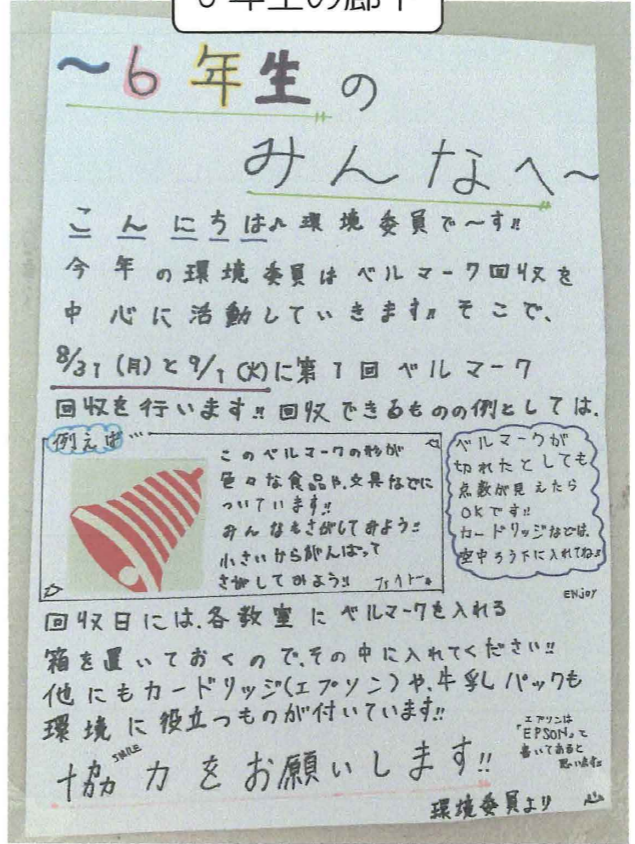 6年生の廊下
〜6年生の
みんなへ〜
こんにちは♪環境委員で〜す!!
今年の環境委員はベルマーク回収を
中心に活動していきます!!そこで、
8/31(月)と9/1(火)に第1回ベルマーク
回収を行います!!回収できるものの例としては、
例えば…
このベルマークの形が
色々な食品や、文具などに
ついています!!
みんなもさがしてみよう!!
小さいからがんばって
さがしてみよう!! ファイトー!!
ベルマークが
切れたとしても
点数が見えたら
OKです!!
カードリッジなどは、
空中ろう下に入れてね!!
ENJOY
回収日には、各教室にベルマークを入れる
箱を置いておくので、その中に入れてください!!
他にもカードリッジ(エプソン)や、牛乳パックも
環境に役立つものが付いています!!
エプソンは
「EPSON」って
書いてあると
思います!!
SMILE
協力をお願いします!!
環境委員より